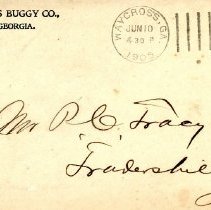 S BUGGY CO.,
GEORGIA.
WAYCROSS, GA.
JUN 10
4-30 P
1905
Mr P. C. Tracy
Tradershil